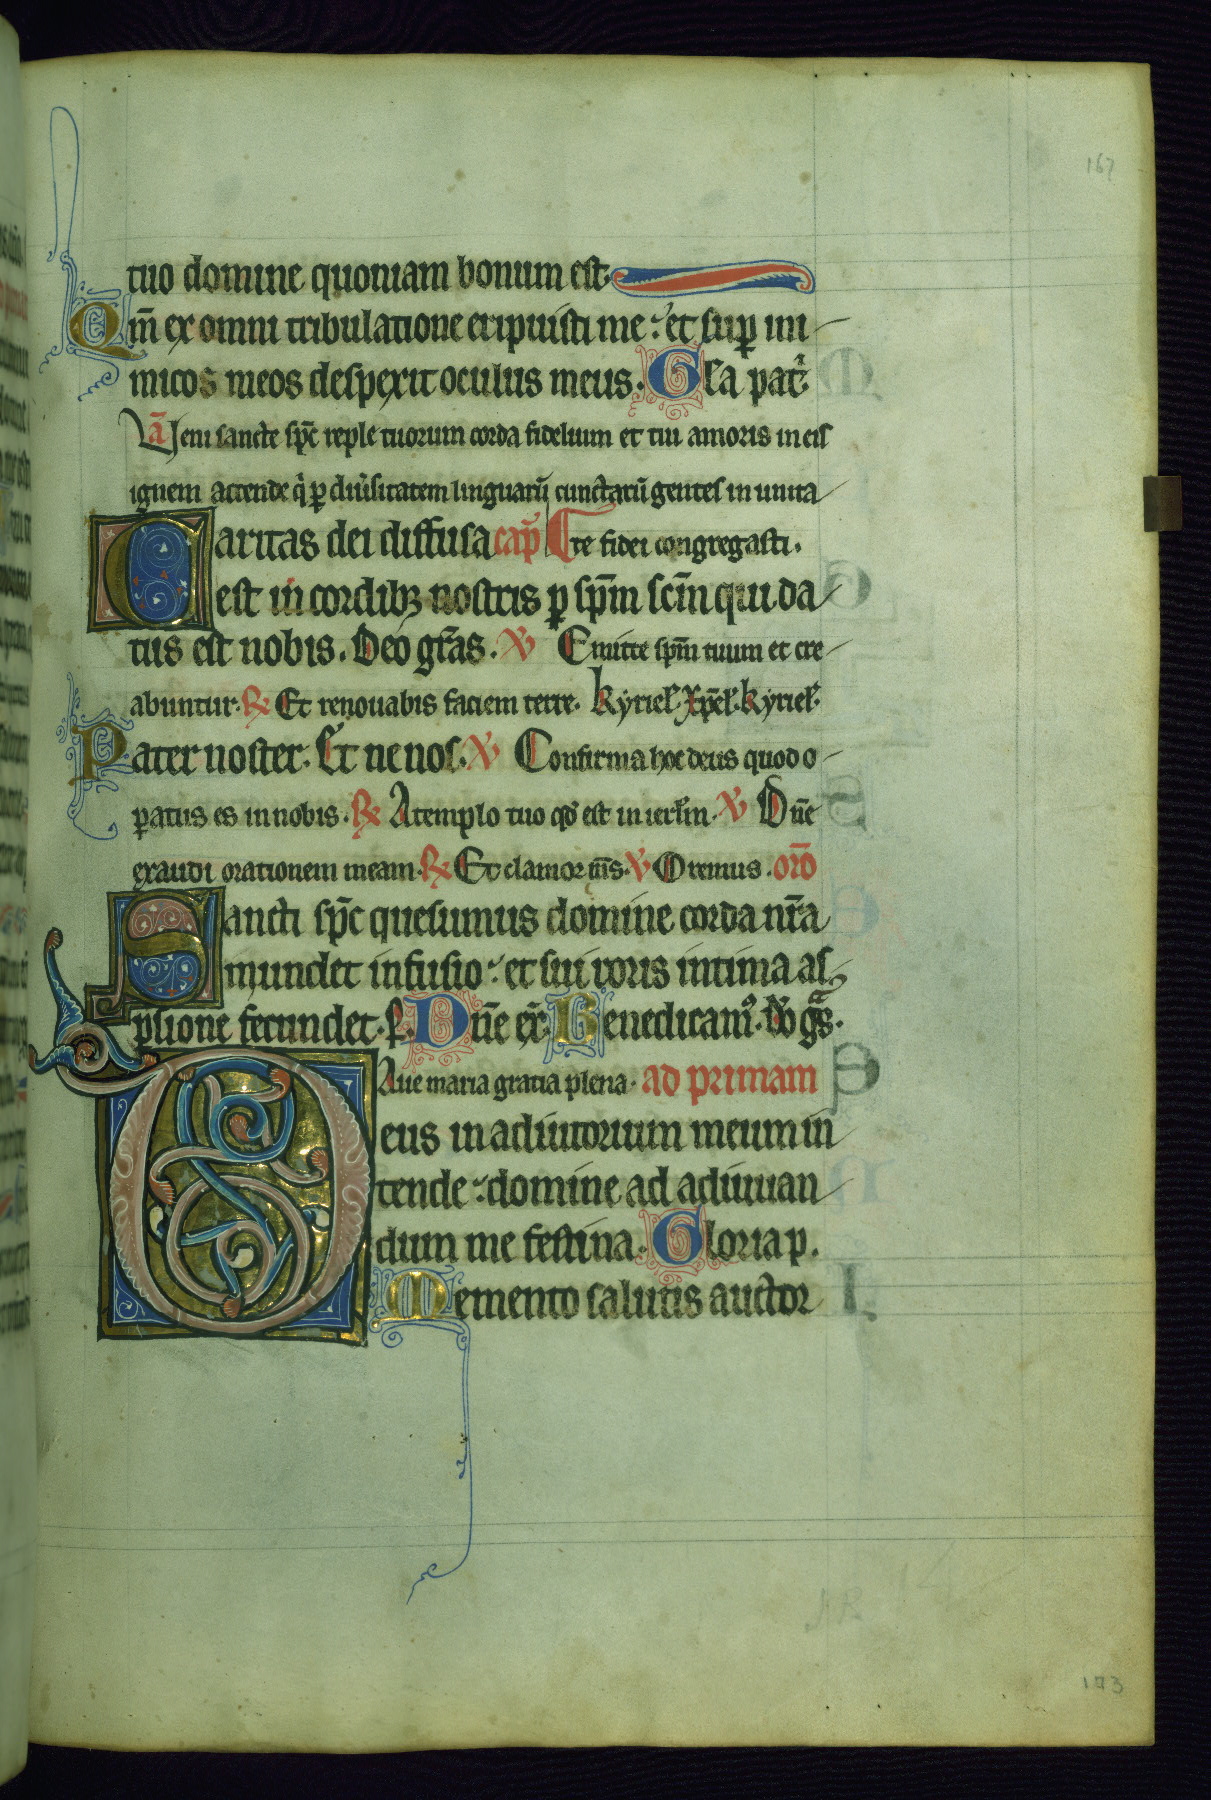 167
tuo domine quoniam bonum est.
Qm̄ ex omni tribulatione eripuisti me : et sup̱ ini
micos meos despexit oculus meus. Gl̄a patͥ
A̅ Ueni sancte sp̄c reple tuorum corda fidelium et tui amoris in eis
ignem accende q̇ ꝑ diu̾sitatem linguarū cunctarū gentes in unita
Caritas dei diffusa cap̄ te fidei congregasti.
est in cordibꝫ nostris ꝑ sp̄m sc̄m qui da
tus est nobis. Deo gr̄as. ℣ Emitte sp̄m tuum et cre
abuntur. ℞ Et renouabis faciem terre. kyriel̄. xp̄el̄. kyriel̄.
Pater noster. Et ne nos. ℣ Confirma hoc deus quod o
ꝑatus es in nobis. ℞ A templo tuo qd̄ est in ierl̄m. ℣ Dn̄e
exaudi orationem meam. ℞ Et clamor m̄s. ℣ Oremus. or̄o
Sancti sp̄c quesumus domine corda nr̄a
mundet infusio : et sui roris intima as
ꝑsione fecundet. ꝑ. Dn̄e ex̄. Benedicam᷒. Do gͣs.
Aue maria gratia plena. ad primam
Deus in adiutorium meum in
tende : domine ad adiuuan
dum me festina. Gloria p.
Memento salutis auctor
173